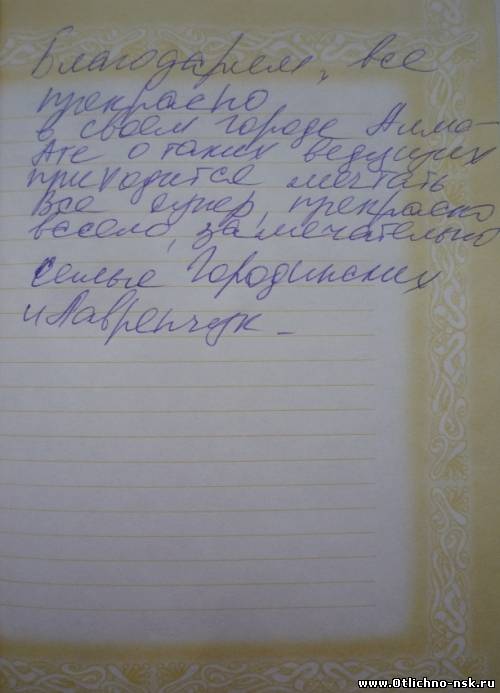 Благодарем, все
прекрасно
в своем городе Алма-
Ате о таких ведущих
приходится мечтать
Все супер, прекрасно
весело, замечательно
семье Городинских
и Лавренчук –
www.Otlichno-nsk.ru